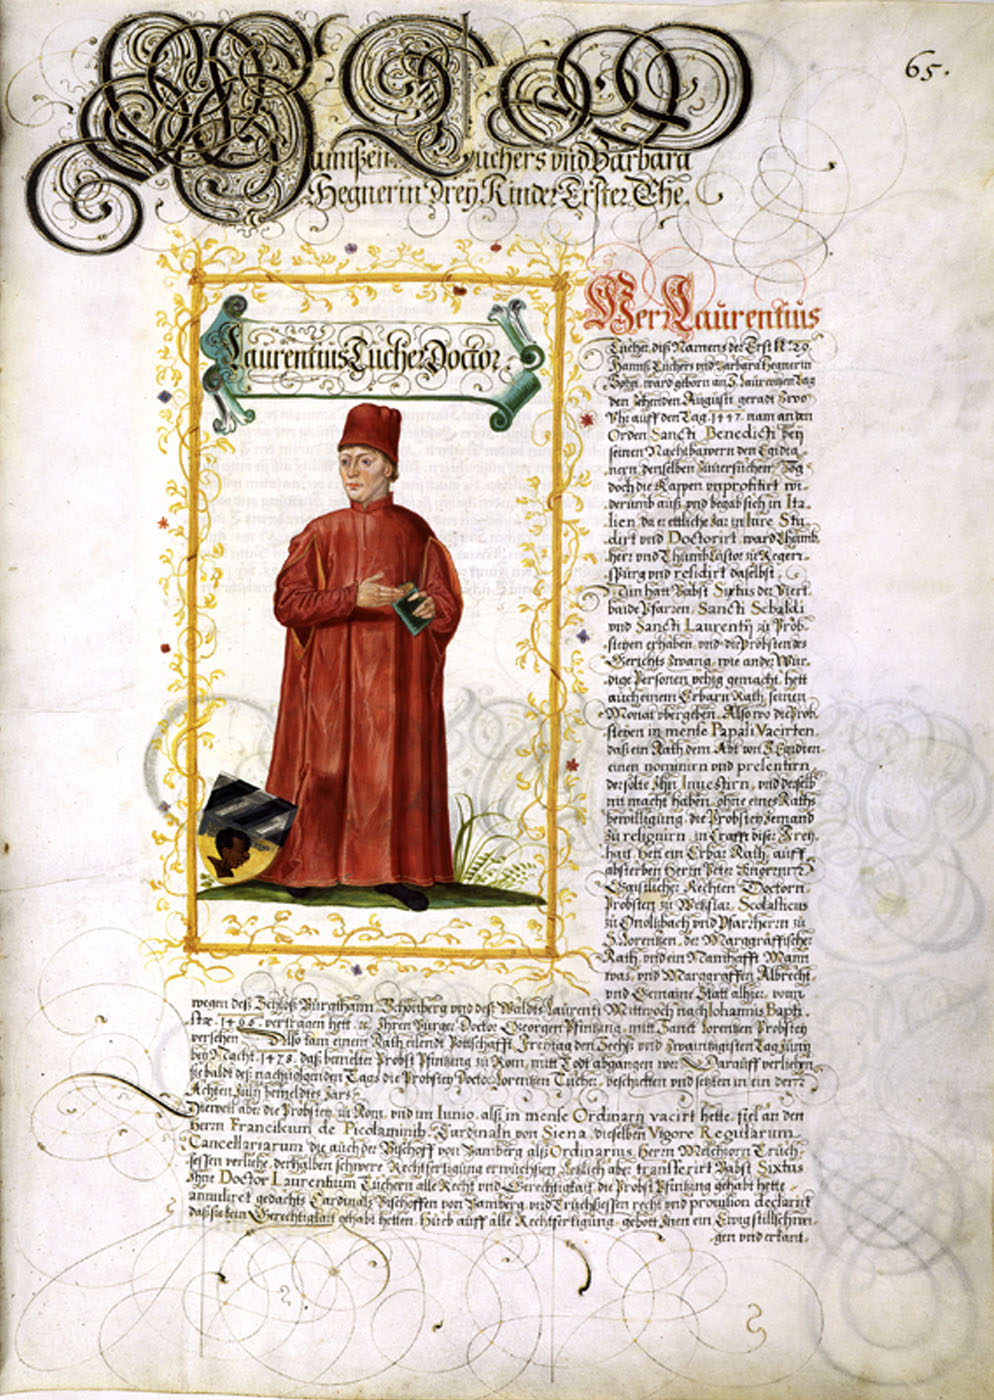 65.
Hannßen Tuchers vnd Barbara
Hegnerin Drey Kinder Erster Ehe.
Laurentius Tucher Doctor
Herr Laurentius
Tucher, diß Namens der Erst
Hannß Tuchers vnd Barbara Hegnerin
Sohn, ward geborn an S. Laurentzen Tag
den Zehenden Augusti gerad Zwo
Vhr auff den Tag. 1447. nam an den
Orden Sancti Benedicti bey
seinen Nachbawern den Egidia
nern denselben zuuersuchen, Zog
doch die Kappen vnprofitirt wi-
derumb auß, vnd begab sich in Ita-
lien, da er ettliche Jar in Iure Stu-
dirt vnd Doctorirt, ward Thumb
herr vnd Thumb Custor zu Regen-
spurg vnd residirt daselbst.
Nun hatt Babst Sixtus der Viert
baide Pfarren, Sancti Sebaldi
vnd Sancti Laurentij zu Prob-
steyen erhaben, vnd die Probsten des
Gerichts zwang, wie ander Wür-
dige Personen vehig gemacht, hett
auch einem Erbarn Rath, seinen
Monat vbergeben, Also wo die Prob-
steyen in mense Papali Vacirten,
daß ein Rath dem Abt von S. Egidien
einen nominirn vnd presentirn
der solte Ihn Inuestirn, vnd derselb
nit macht haben, ohne eines Raths
bewilligung, die Probstey Jemand
zu resignirn, in Crafft diser Frey-
hait, hett ein Erbar Rath, auff
absterben Herrn Peter Knorrn
Gaistlicher Rechten Doctorn
Probsten zu Wetzflar, Scolasticus
zu Onoltzbach vnd Pfarrherrn zu
S. Lorentzen, der Marggräffischer
Rath, vnd ein Namhafft Mann
was, vnd Marggraffen Albrecht
vnd Gemaine Statt alhier, vonn
wegen deß Schloß Burgthann Schönberg vnd deß Waldts Laurenti Mittwoch nach Iohannis Bapti-
stæ. vertragen hett, Ihren Burger Doctor Georgen Pfintzing, mitt Sanct Lorentzen Probstey
versehen. Also kam einem Rath eilendt Pottschafft, Freytag den Sechs vnd Zwaintzigisten Tag Juny
bey Nacht, 1478. daß bemelter Probst Pfintzing zu Rom, mitt Todt abgangen wer, Darauff verliehen
sie baldt deß nachuolgenden Tags die Probstey Doctor Lorentzen Tucher, beschickten vnd setzten in ein den
Achten July bemeldtes Jars.
Dieweil aber die Probstey, zu Rom, vnd im Iunio, alß in mense Ordinary vacirt hette, fiel an den
Herrn Franciscum de Picolaminib. Cardinaln von Siena, dieselben Vigore Regularum
Cancellariarum die auch der Bischoff von Bamberg alß Ordinarius, Herrn Melchiorn Truch-
sessen verliehe, derhalben schwere Rechtfertigung erwüchsen, Letzlich aber transferirt Babst Sixtus
Ihne Doctor Laurentium Tuchern alle Recht vnd Gerechtigkait, die Probst Pfintzing gehabt hette
annulliret gedachts Cardinals Bischoffen von Bamberg vnd Truchsessen recht vnd prouision declarirt
daß sie kein Gerechtigkait gehabt hetten, Hueb auff alle Rechtfertigung, gebott Inen ein Ewig stillschwei-
gen vnd erkant.